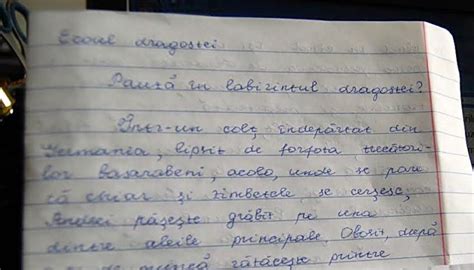 Ecoul dragostei
Pauză în labirintul dragostei?
Într-un colț îndepărtat din
Germania, lipsit de forfota
lor basarabeni, acolo, unde se pare
că chiar și zîmbetele se cerșesc,
Andrei pășește grăbit pe una
dintre aleile principale. Obosit, după
de muncă rătăcește printre